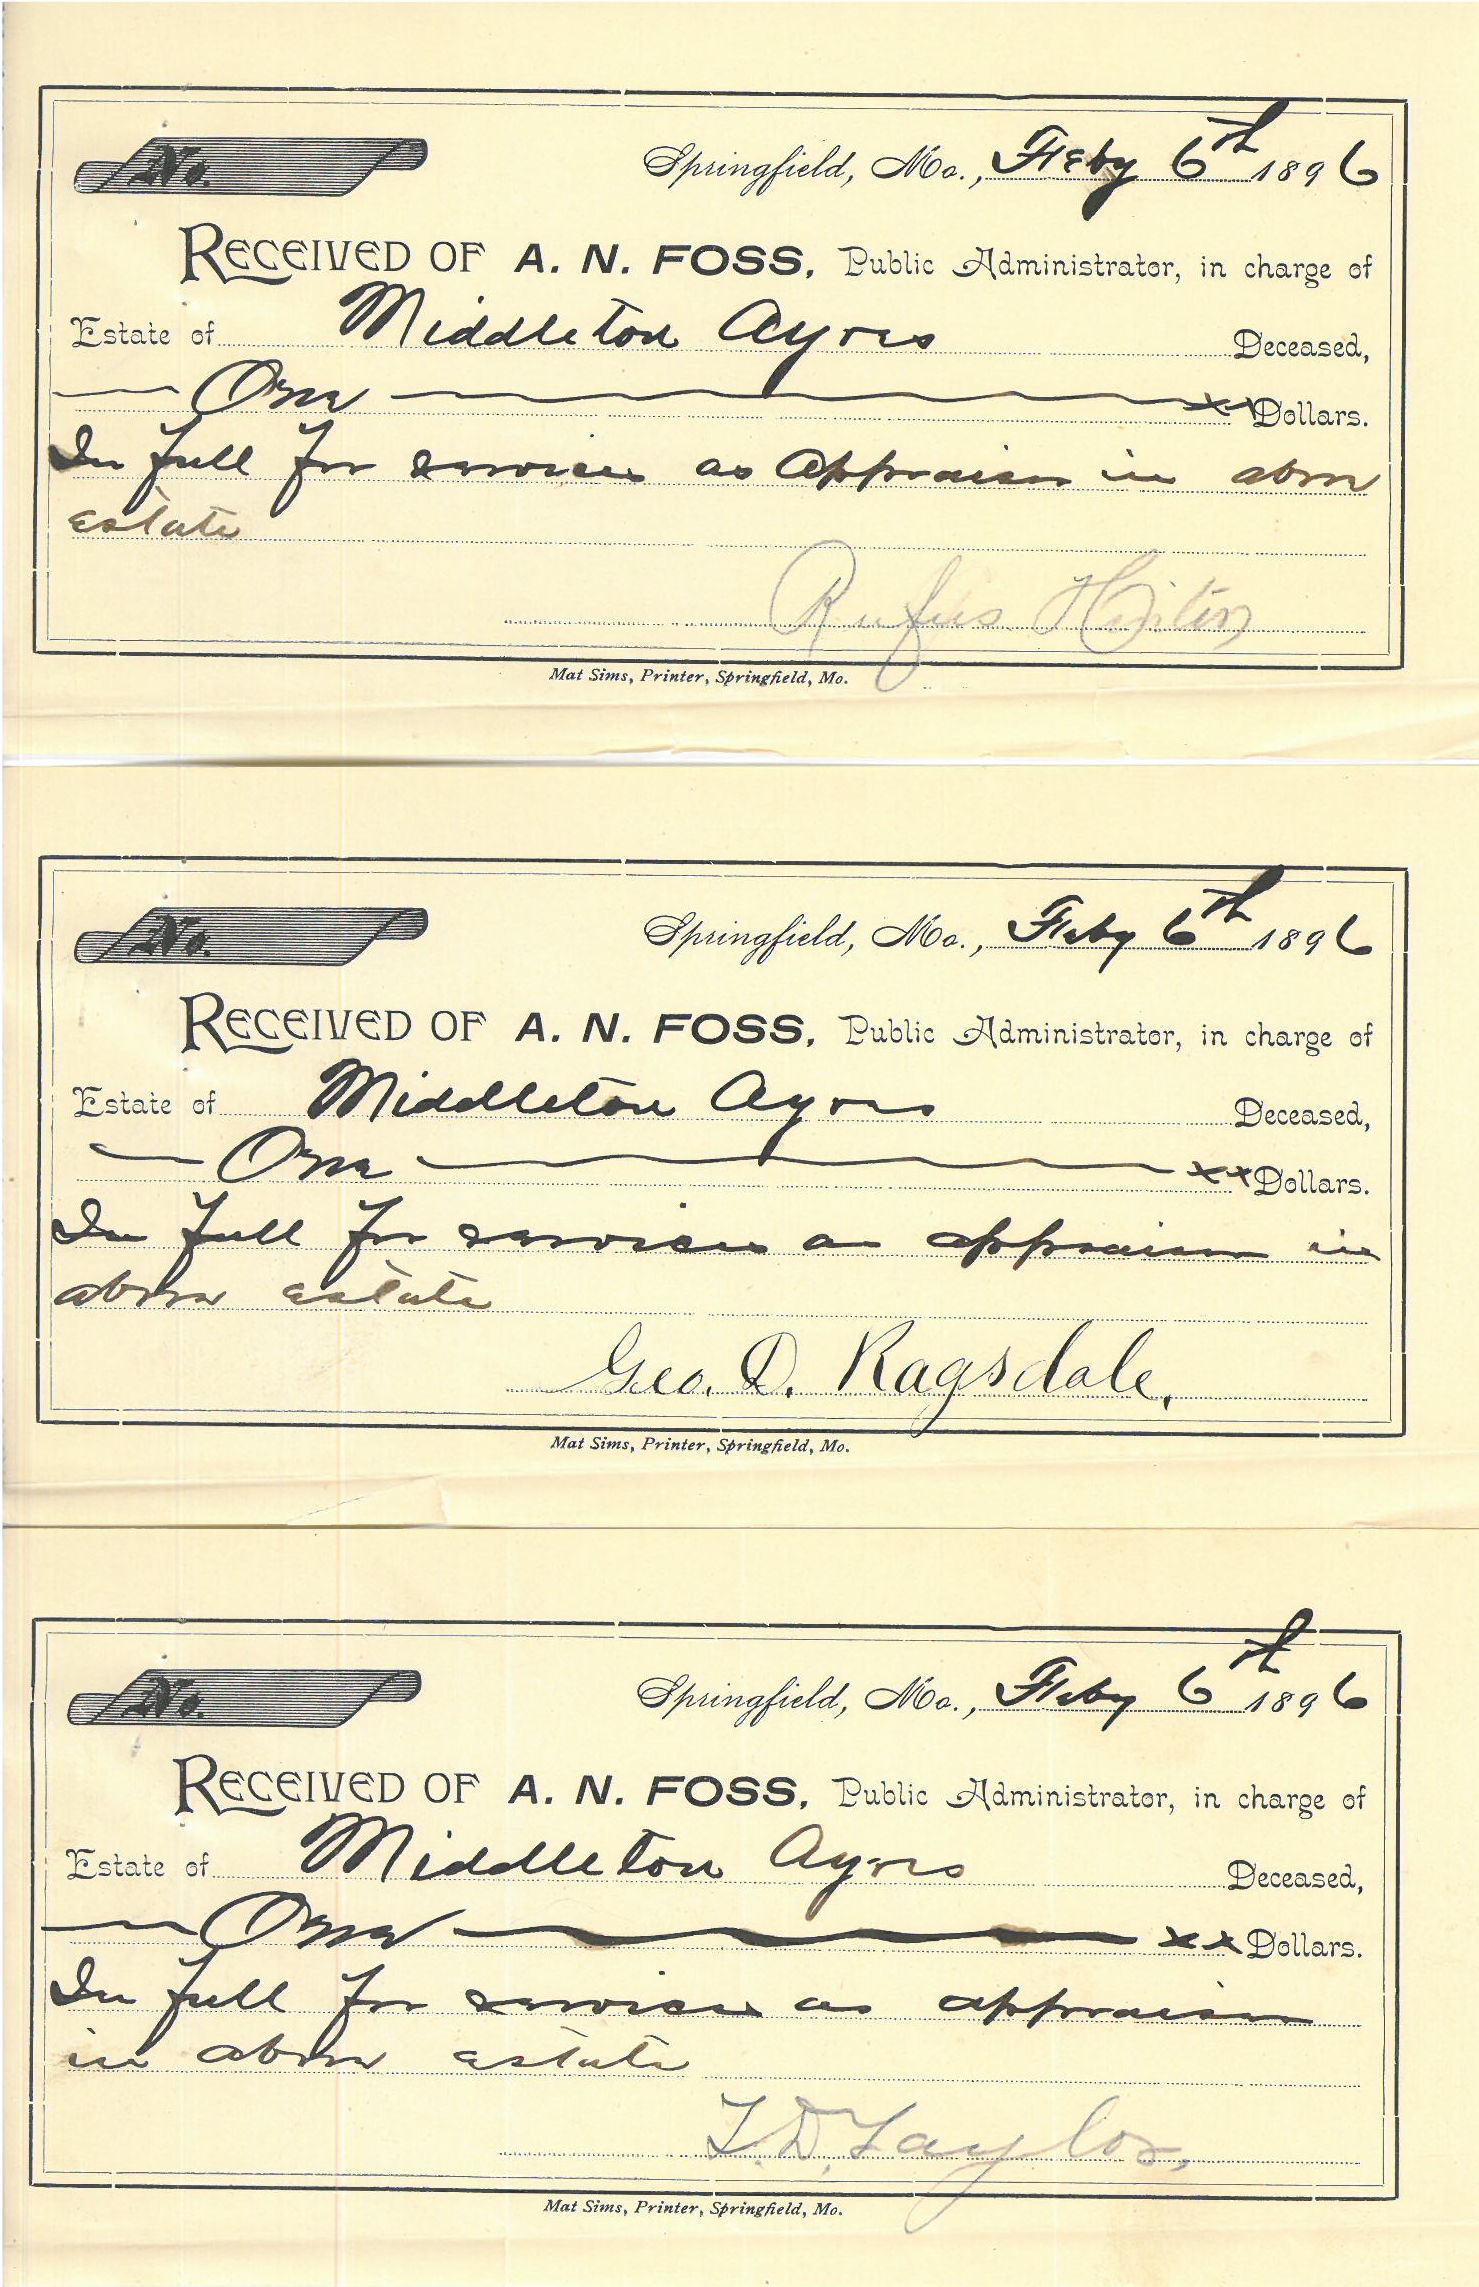 No.
Springfield, Mo., Feby 6th 1896
RECEIVED OF A. N. FOSS, Public Administrator, in charge of
Estate of Middleton Ayres Deceased,
One xx Dollars.
In full for services as Appraiser in above
estate
Rufus
Mat Sims, Printer, Springfield, Mo.
No.
Springfield, Mo., Feby 6th 1896
RECEIVED OF A. N. FOSS, Public Administrator, in charge of
Estate of Middleton Ayres Deceased,
One xx Dollars.
In full for services as appraiser in
above estate
Geo. D. Ragsdale.
Mat Sims, Printer, Springfield, Mo.
No.
Springfield, Mo., Feby 6th 1896
RECEIVED OF A. N. FOSS, Public Administrator, in charge of
Estate of Middleton Ayres Deceased,
One xx Dollars.
In full for services as appraiser
in above estate
T. D. Taylor,
Mat Sims, Printer, Springfield, Mo.